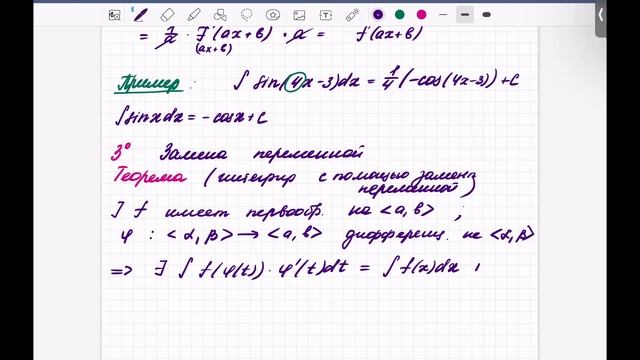 = 1/a · F'(ax+b) · a = f(ax+b)
(ax+b)
Пример: ∫ sin(4x-3)dx = 1/4 (-cos(4x-3)) + C
∫sinxdx = -cosx+C
3° Замена переменной
Теорема (интегрир с помощью замены
переменной)
] f имеет первообр. на <a,b> ;
φ : <α,β> → <a,b> дифференц. на <α,β>
=> ∃ ∫ f(φ(t)) · φ'(t)dt = ∫ f(x)dx ,